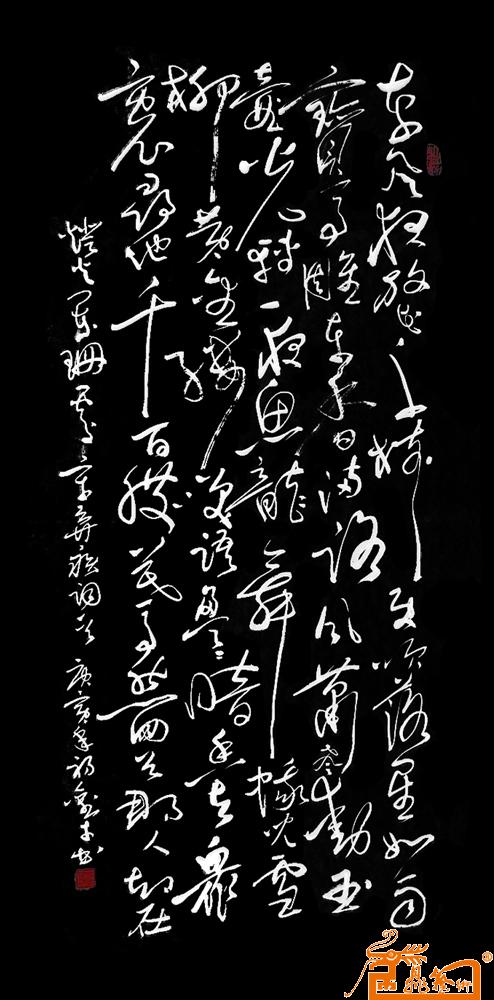 东风夜放花千树更吹落星如雨
寳馬雕车香满路风萧声动玉
壶光转一夜鱼龙舞蛾儿雪
柳黄金缕笑语盈盈暗香去众
裏寻他千百度蓦然回首那人却在
燈火阑珊处辛弃疾词一首 庚寅年初